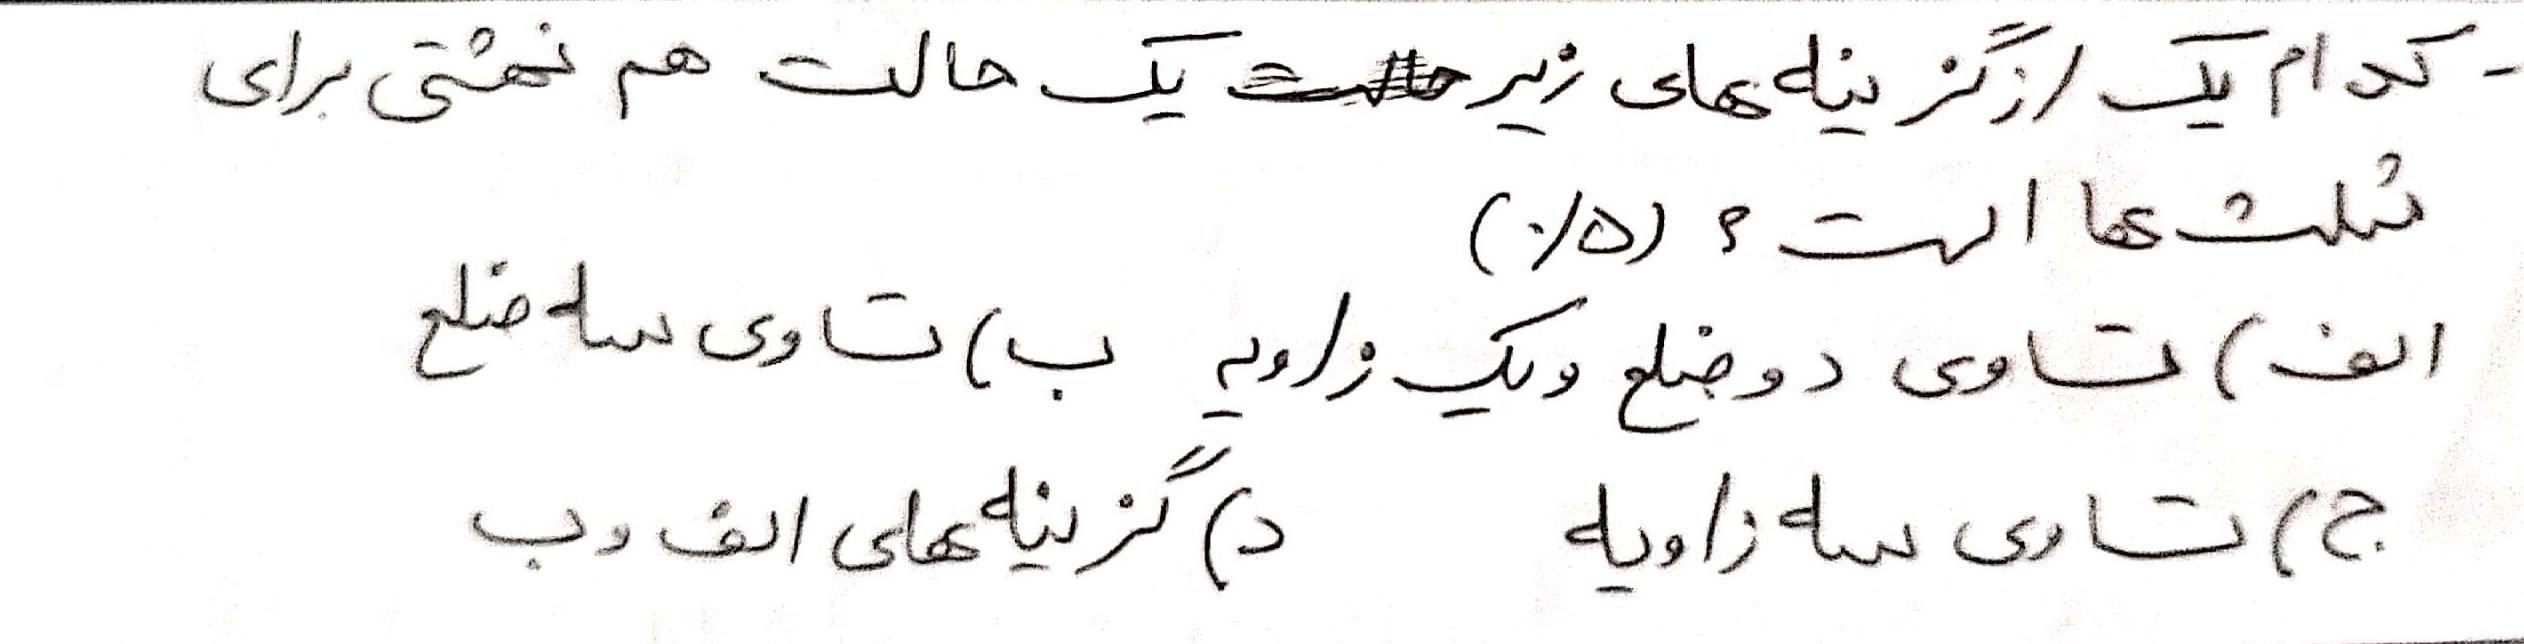 - کدام یک از گزینه های زیر یک حالت هم نهشتی برای
مثلث ها است ؟ (۰/۵)
الف) تساوی دو ضلع و یک زاویه ب) تساوی سه ضلع
ج) تساوی سه زاویه د) گزینه های الف و ب